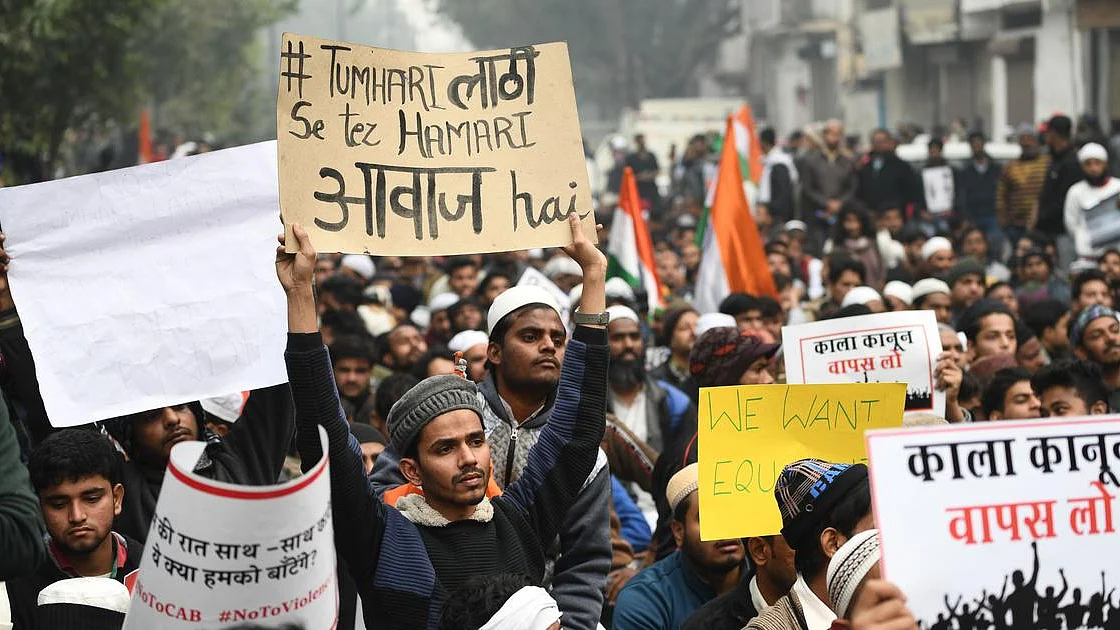 # TUMHARI लाठी
Se tez HAMARI
आवाज hai
काला कानून
वापस लो
WE WANT
EQU
काला कानून
वापस लो
की रात साथ – साथ
ये क्या हमको बाँटेंगे?
#NoToCAB #NoToViolen